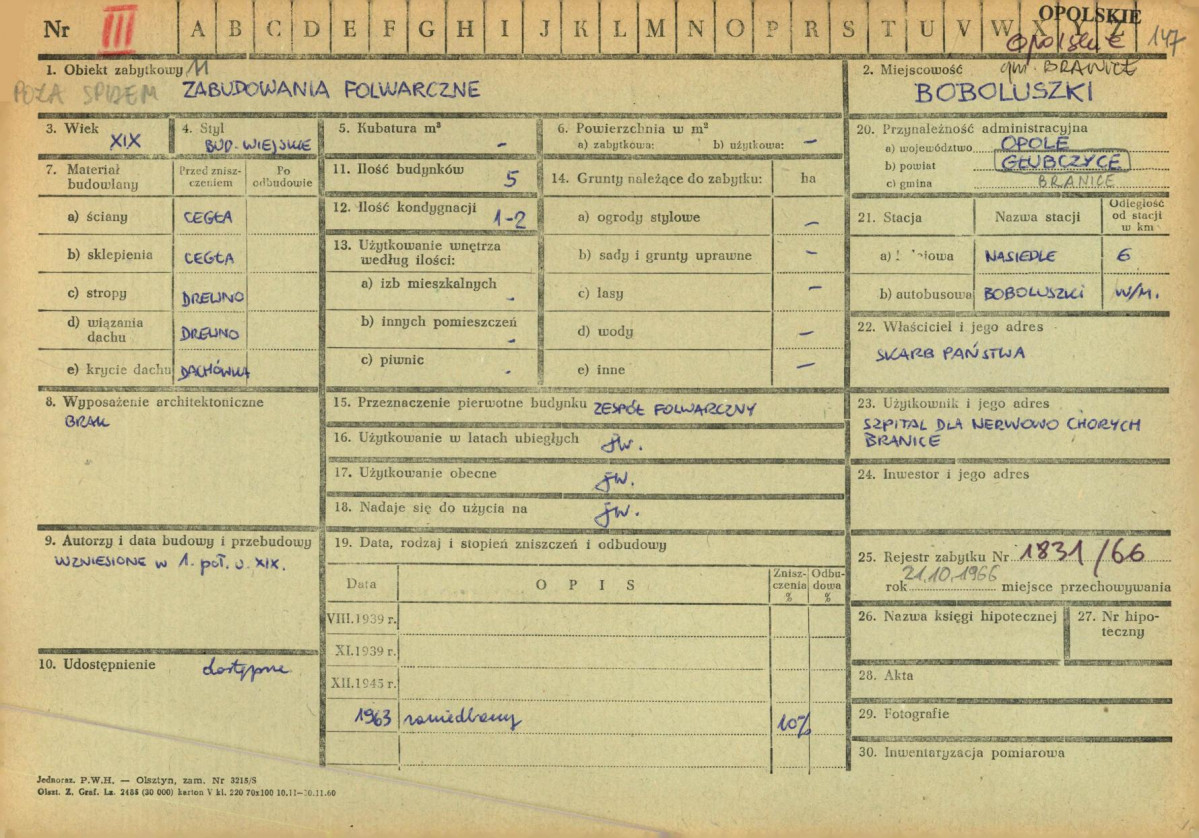 Nr III A B C D E F G H I J K L M N O P R S T U V W X Y Z OPOLSKIE
Opolskie 147
1. Obiekt zabytkowy 11
POZA SPISEM ZABUDOWANIA FOLWARCZNE
2. Miejscowość gm. BRANICE
BOBOLUSZKI
3. Wiek
XIX
4. Styl
BUD. WIEJSKIE
5. Kubatura m³
-
6. Powierzchnia w m²
a) zabytkowa: b) użytkowa: -
7. Materiał budowlany
Przed zniszczeniem
Po odbudowie
a) ściany CEGŁA
b) sklepienia CEGŁA
c) stropy DREWNO
d) wiązania dachu DREWNO
e) krycie dachu DACHÓWKA
8. Wyposażenie architektoniczne
BRAK
9. Autorzy i data budowy i przebudowy
WZNIESIONE W 1. poł. w. XIX.
10. Udostępnienie dostępne
11. Ilość budynków 5
12. Ilość kondygnacji 1-2
13. Użytkowanie wnętrza
według ilości:
a) izb mieszkalnych -
b) innych pomieszczeń -
c) piwnic -
14. Grunty należące do zabytku: ha
a) ogrody stylowe -
b) sady i grunty uprawne -
c) lasy -
d) wody -
e) inne -
15. Przeznaczenie pierwotne budynku ZESPÓŁ FOLWARCZNY
16. Użytkowanie w latach ubiegłych jw.
17. Użytkowanie obecne jw.
18. Nadaje się do użycia na jw.
19. Data, rodzaj i stopień zniszczeń i odbudowy
Data OPIS Zniszczenia % Odbudowa %
VIII.1939 r.
XI.1939 r.
XII.1945 r.
1963 zaniedbany 10%
20. Przynależność administracyjna
a) województwo OPOLE
b) powiat GŁUBCZYCE
c) gmina BRANICE
21. Stacja Nazwa stacji Odległość od stacji w km
a) NASIEDLE 6
b) autobusowa BOBOLUSZKI W/M.
22. Właściciel i jego adres
SKARB PAŃSTWA
23. Użytkownik i jego adres
SZPITAL DLA NERWOWO CHORYCH
BRANICE
24. Inwestor i jego adres
25. Rejestr zabytku Nr 1831/66
21.10.1966
rok miejsce przechowywania
26. Nazwa księgi hipotecznej
27. Nr hipoteczny
28. Akta
29. Fotografie
30. Inwentaryzacja pomiarowa
Jednoraz. P.W.H. — Olsztyn, zam. Nr 3215/S
Olszt. Z. Graf. Lz. 2485 (30 000) karton V kl. 220 70x100 10.11—10.11.60